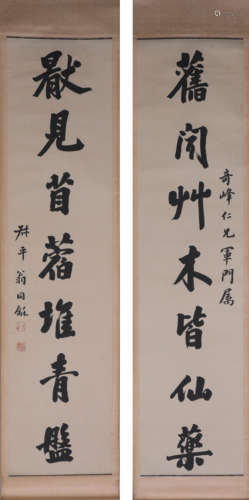 舊聞艸木皆仙藥
奇峰仁兄軍門属
猒見苜蓿堆青盤
叔平翁同龢